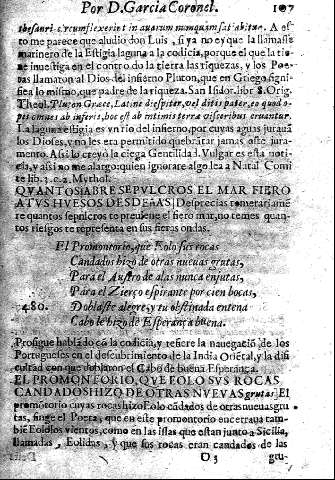 Por D. Garcia Coronel. 107
thesauri circumflexerint in auarum numquam satiabitur. A es-
to me parece que aludio don Luis, si ya no es que la llamasse
marinero de la Estigia laguna a la codicia, porque el que la tie-
ne inuestiga en el centro de la tierra las riquezas, y los Poe-
tas llamaron al Dios del infierno Pluton, que en Griego signifi-
ca lo mismo, que padre de la riqueza. San Isidor. lib 8. Orig.
Theol. Pluton Græce, Latine diespiter, vel ditis pater, eo quod o-
pes omnes ab inferis, hoc est ab intimis terra visceribus eruantur.
La laguna estigia es vn rio del infierno, por cuyas aguas jurauã
los Dioses, y no les era permitido quebrãtar jamas este jura-
mento. Assi lo creyò la ciega Gentilidad. Vulgar es esta noti-
cia, y assi no me alargo: quien ignorare algo lea a Natal Comi
te lib. 3. c. 2. Mythol.
QVANTOS ABRE SEPVLCROS EL MAR FIERO
A TVS HVESOS DESDEÑAS] Desprecias temerariamẽ
te quantos sepulcros te preuiene el fiero mar, no temes quan-
tos riesgos te representa en sus fieras ondas.
El Promontorio, que Eolo sus rocas
Candados hizo de otras nueuas grutas,
Para el Austro de alas nunca enjutas,
Para el Zierço espirante por cien bocas,
480. Doblaste alegre, y tu obstinada entena
Cabo le hizo de Esperança buena.
Prosigue hablãdo cõ la codicia, y refiere la nauegaciõ de los
Portugueses en el descubrimiento de la India Oriẽtal, y la difi
cultad con que doblaron el Cabo de buena Esperança.
EL PROMONTORIO, QVE EOLO SVS ROCAS
CANDADOS HIZO DE OTRAS NVEVAS grutas] El
promõtorio cuyas rocas hizo Eolo cãdados de otras nueuas gru-
tas, finge el Poeta, que en este promontorio encerraua tam-
biẽ Eolo los vientos, como en las islas que estan junto a Sicilia,
llamadas, Eolidas, y que sus rocas eran candados de las
O 3 gru-